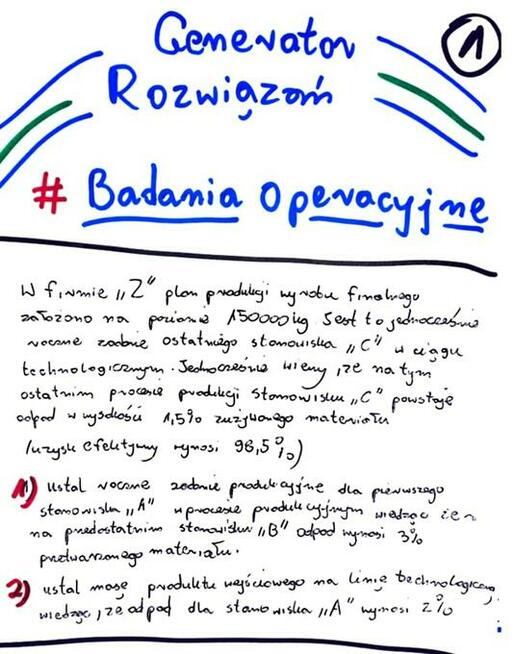 Generator
1
Rozwiązań
# Badania Operacyjne
W firmie „Z" plan produkcji wyrobu finalnego
założono na poziomie 150000 kg. Jest to jednocześnie
roczne zadanie ostatniego stanowiska „C" w ciągu
technologicznym. Jednocześnie wiemy, że na tym
ostatnim procesie produkcji stanowisku „C" powstaje
odpad w wysokości 1,5% zużywanego materiału
/uzysk efektywny wynosi 98,5%)
1) ustal roczne zadanie produkcyjne dla pierwszego
stanowiska „A" w procesie produkcyjnym wiedząc że
na przedostatnim stanowisku „B" odpad wynosi 3%
przetwarzanego materiału.
2) ustal masę produktu wejściowego na linię technologiczną,
wiedząc, że odpad dla stanowiska „A" wynosi 2%